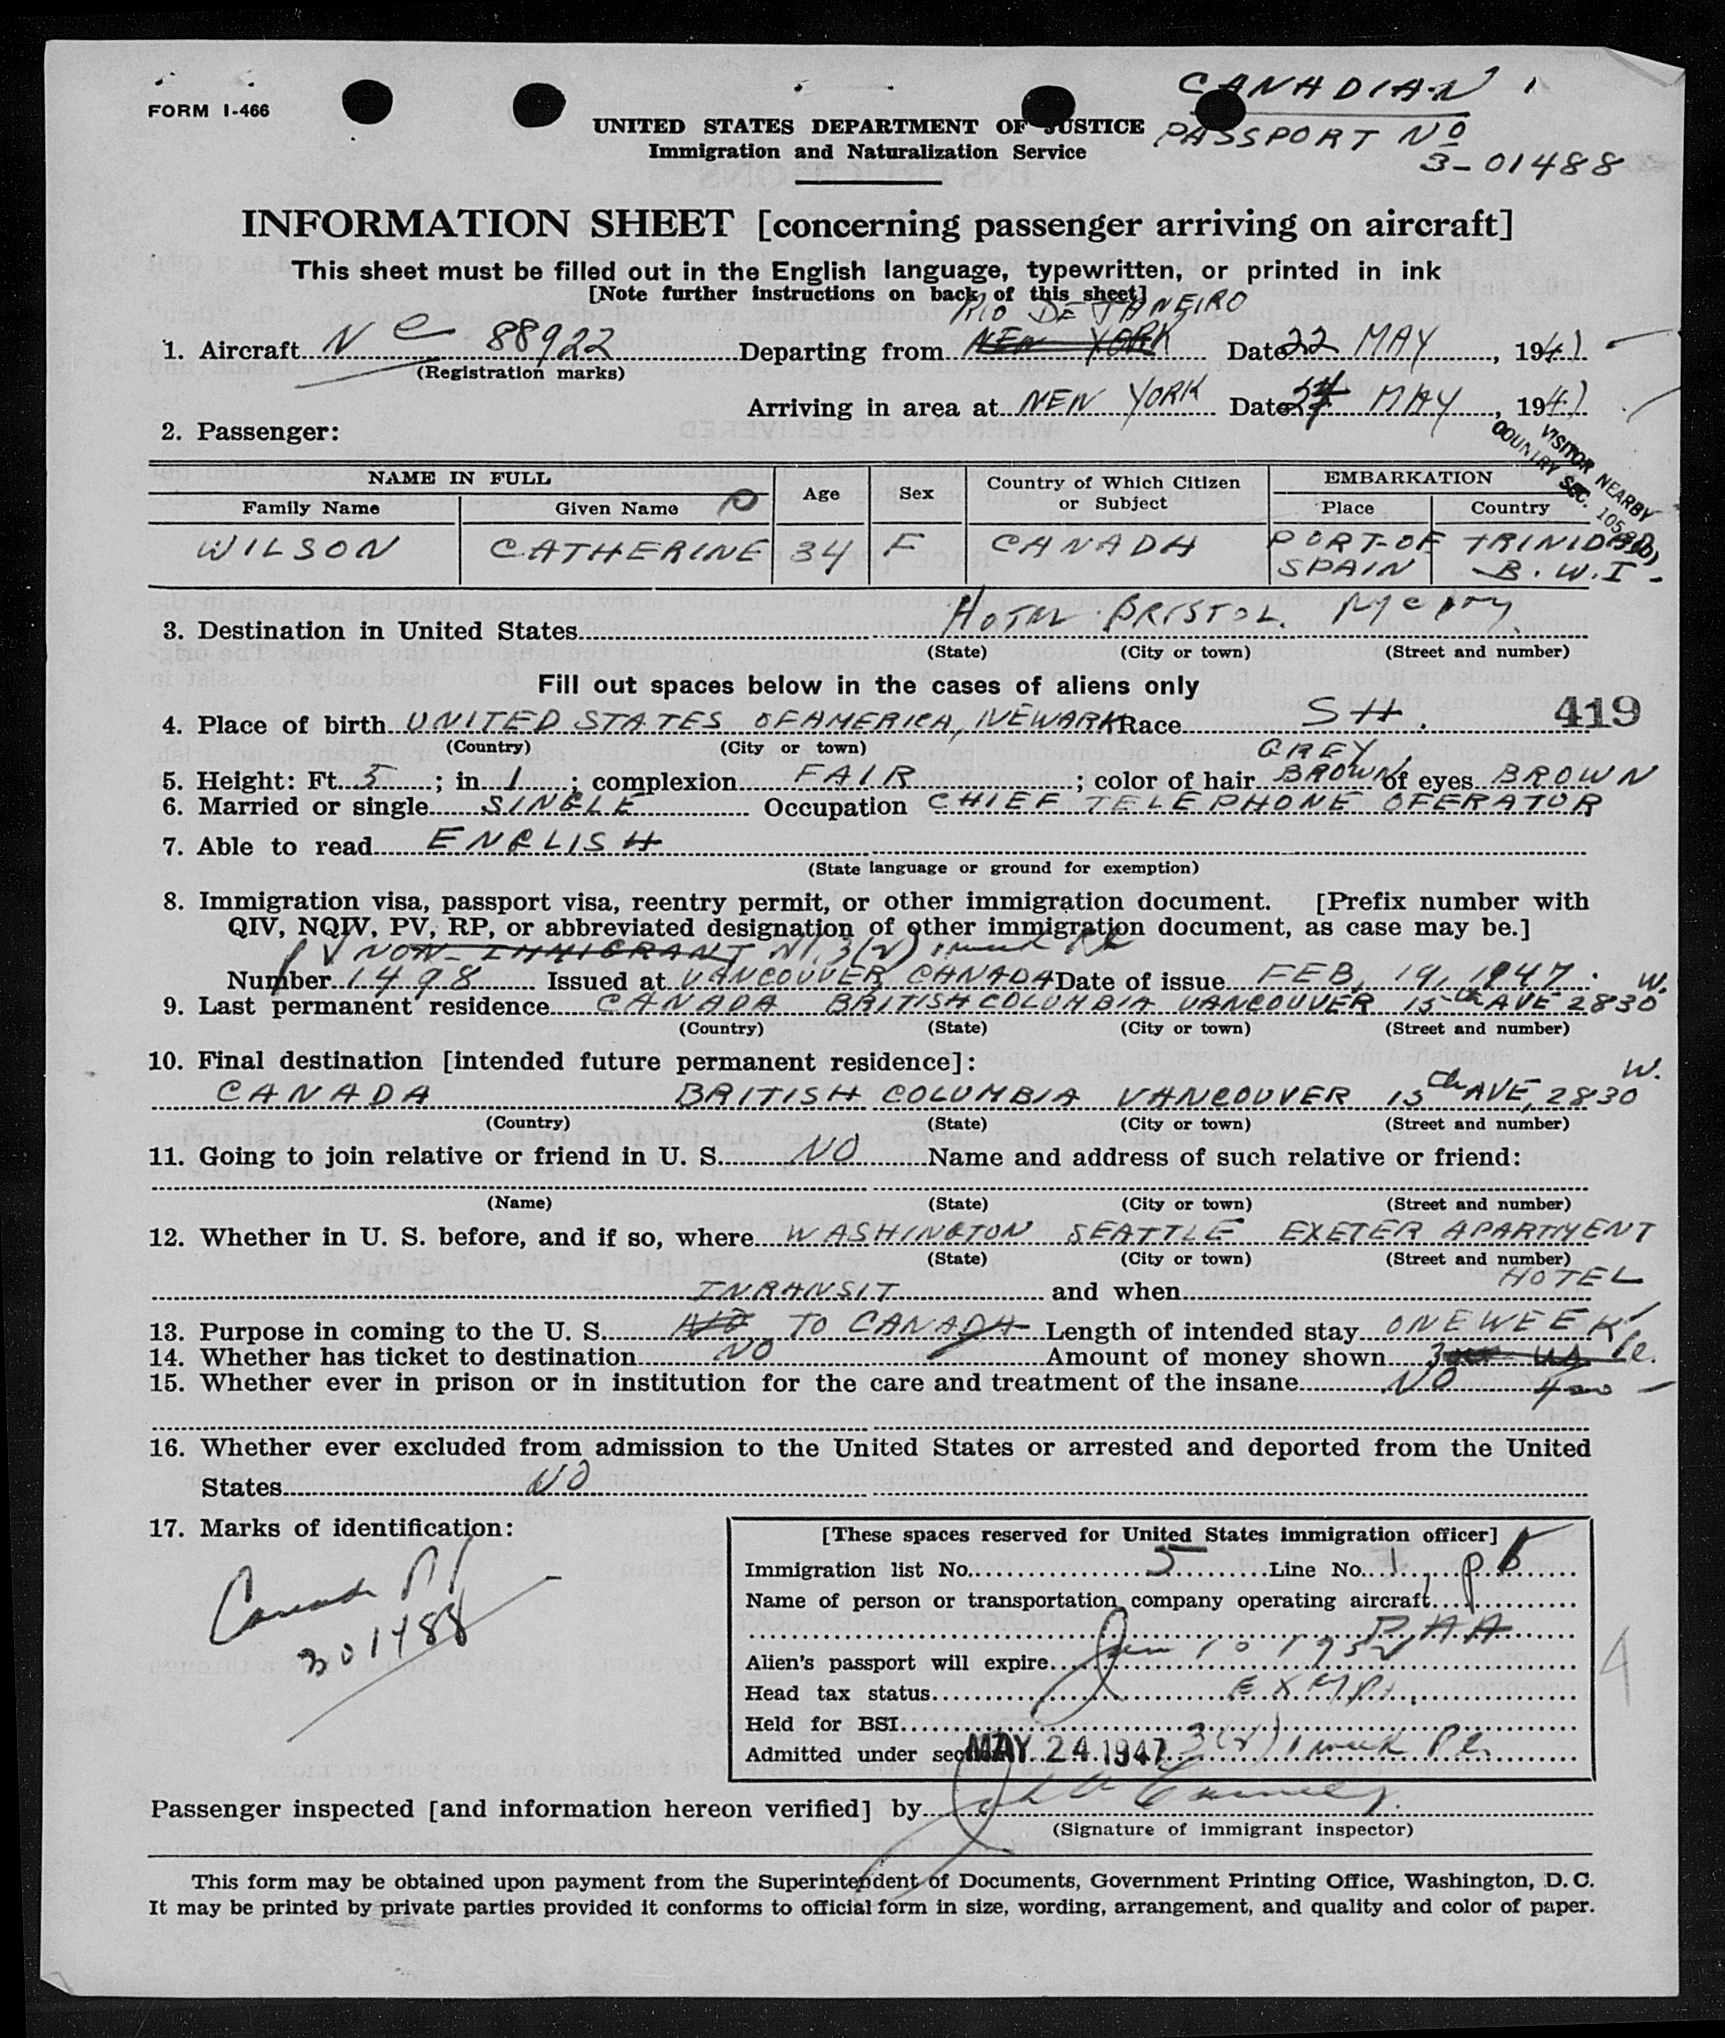 CANADIAN
FORM I-466
UNITED STATES DEPARTMENT OF JUSTICE
PASSPORT Nº
Immigration and Naturalization Service
3-01488
INFORMATION SHEET [concerning passenger arriving on aircraft]
This sheet must be filled out in the English language, typewritten, or printed in ink
[Note further instructions on back of this sheet]
RIO DE JANEIRO
1. Aircraft Nc 88922 Departing from NEW YORK Date 22 MAY, 1947
(Registration marks)
Arriving in area at NEW YORK Date 24 MAY, 1947
2. Passenger:
VISITOR NEARBY
COUNTRY SEC. 105.3(b)
NAME IN FULL Age Sex Country of Which Citizen or Subject EMBARKATION
Family Name Given Name Place Country
WILSON CATHERINE 34 F CANADA PORT-OF SPAIN TRINIDAD B.W.I-
3. Destination in United States HOTEL BRISTOL.
(State) (City or town) (Street and number)
Fill out spaces below in the cases of aliens only
4. Place of birth UNITED STATES OF AMERICA, NEWARK Race SH. 419
(Country) (City or town)
GREY
5. Height: Ft. 5; in 1; complexion FAIR; color of hair BROWN of eyes BROWN
6. Married or single SINGLE Occupation CHIEF TELEPHONE OPERATOR
7. Able to read ENGLISH
(State language or ground for exemption)
8. Immigration visa, passport visa, reentry permit, or other immigration document. [Prefix number with
QIV, NQIV, PV, RP, or abbreviated designation of other immigration document, as case may be.]
PV NON-IMMIGRANT 3(2) 1 week
Number 1498 Issued at VANCOUVER, CANADA Date of issue FEB, 19, 1947.
W.
9. Last permanent residence CANADA BRITISH COLUMBIA VANCOUVER 15th AVE 2830
(Country) (State) (City or town) (Street and number)
10. Final destination [intended future permanent residence]:
W.
CANADA BRITISH COLUMBIA VANCOUVER 15th AVE, 2830
(Country) (State) (City or town) (Street and number)
11. Going to join relative or friend in U. S. NO Name and address of such relative or friend:
(Name) (State) (City or town) (Street and number)
12. Whether in U. S. before, and if so, where WASHINGTON SEATTLE EXETER APARTMENT
(State) (City or town) (Street and number)
HOTEL
INRANSIT and when
13. Purpose in coming to the U. S. TO CANADA Length of intended stay ONE WEEK
14. Whether has ticket to destination NO Amount of money shown
15. Whether ever in prison or in institution for the care and treatment of the insane NO 400
16. Whether ever excluded from admission to the United States or arrested and deported from the United
States NO
17. Marks of identification:
Canada PP
301488
[These spaces reserved for United States immigration officer]
Immigration list No. 5 Line No. 1
Name of person or transportation company operating aircraft
PAA
Alien's passport will expire Jan 10 1952
Head tax status EXMPT.
Held for BSI
Admitted under section MAY 24 1947 3(2) 1 week
Passenger inspected [and information hereon verified] by
(Signature of immigrant inspector)
4
This form may be obtained upon payment from the Superintendent of Documents, Government Printing Office, Washington, D.C.
It may be printed by private parties provided it conforms to official form in size, wording, arrangement, and quality and color of paper.